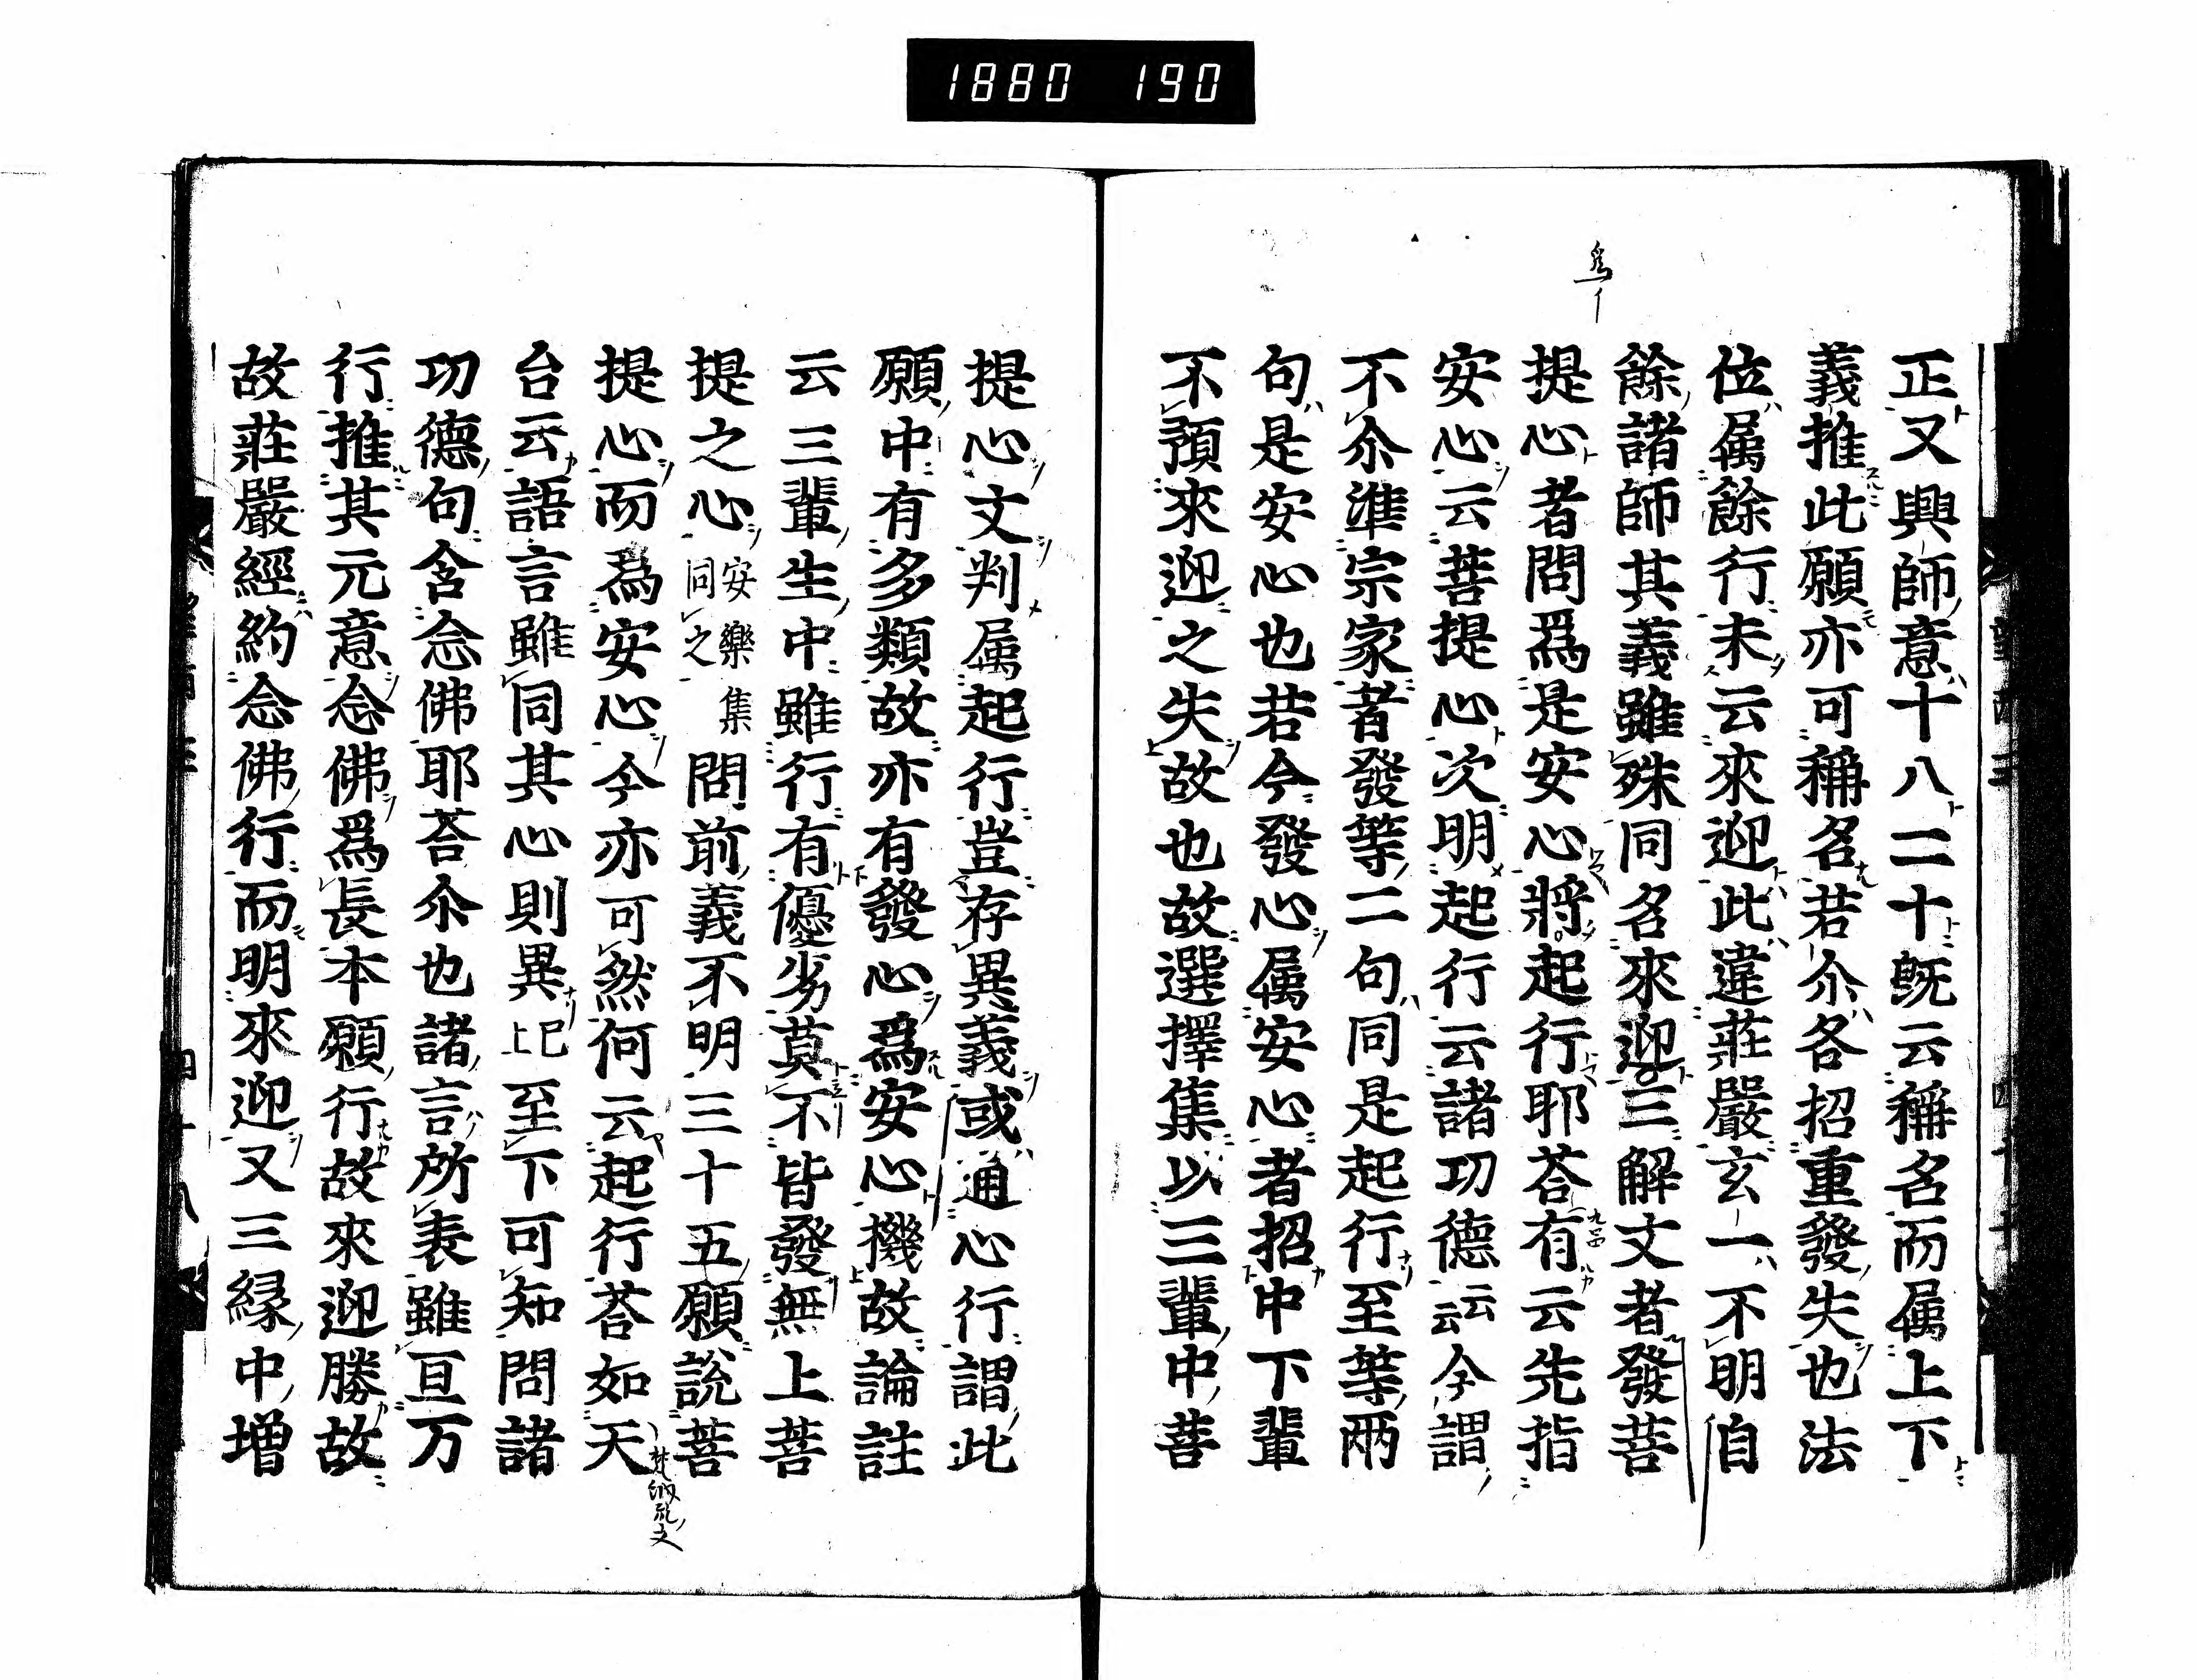 1880 190
正又興師意十八二十既云稱名而属上下
義推此願亦可稱名若尒各招重發失也法
位属餘行未云來迎此違莊嚴玄一不明自
餘諸師其義雖殊同名來迎三解文者發菩
提心者問爲是安心將起行耶荅有云先指
安心云菩提心次明起行云諸功德云云今謂
不尒準宗家者發等二句同是起行至等兩
句是安心也若今發心属安心者招中下輩
不預來迎之失故也故選擇集以三輩中菩
提心文判属起行豈存異義或通心行謂此
願中有多類故亦有發心爲安心機故論註
云三輩生中雖行有優劣莫不皆發無上菩
提之心安樂集同之問前義不明三十五願説菩
提心而爲安心今亦可然何云起行荅如天
台云語言雖同其心則異已上至下可知問諸
功德句含念佛耶荅尒也諸言所表雖亘万
行推其元意念佛爲長本願行故來迎勝故
故莊嚴經約念佛行而明來迎又三縁中増